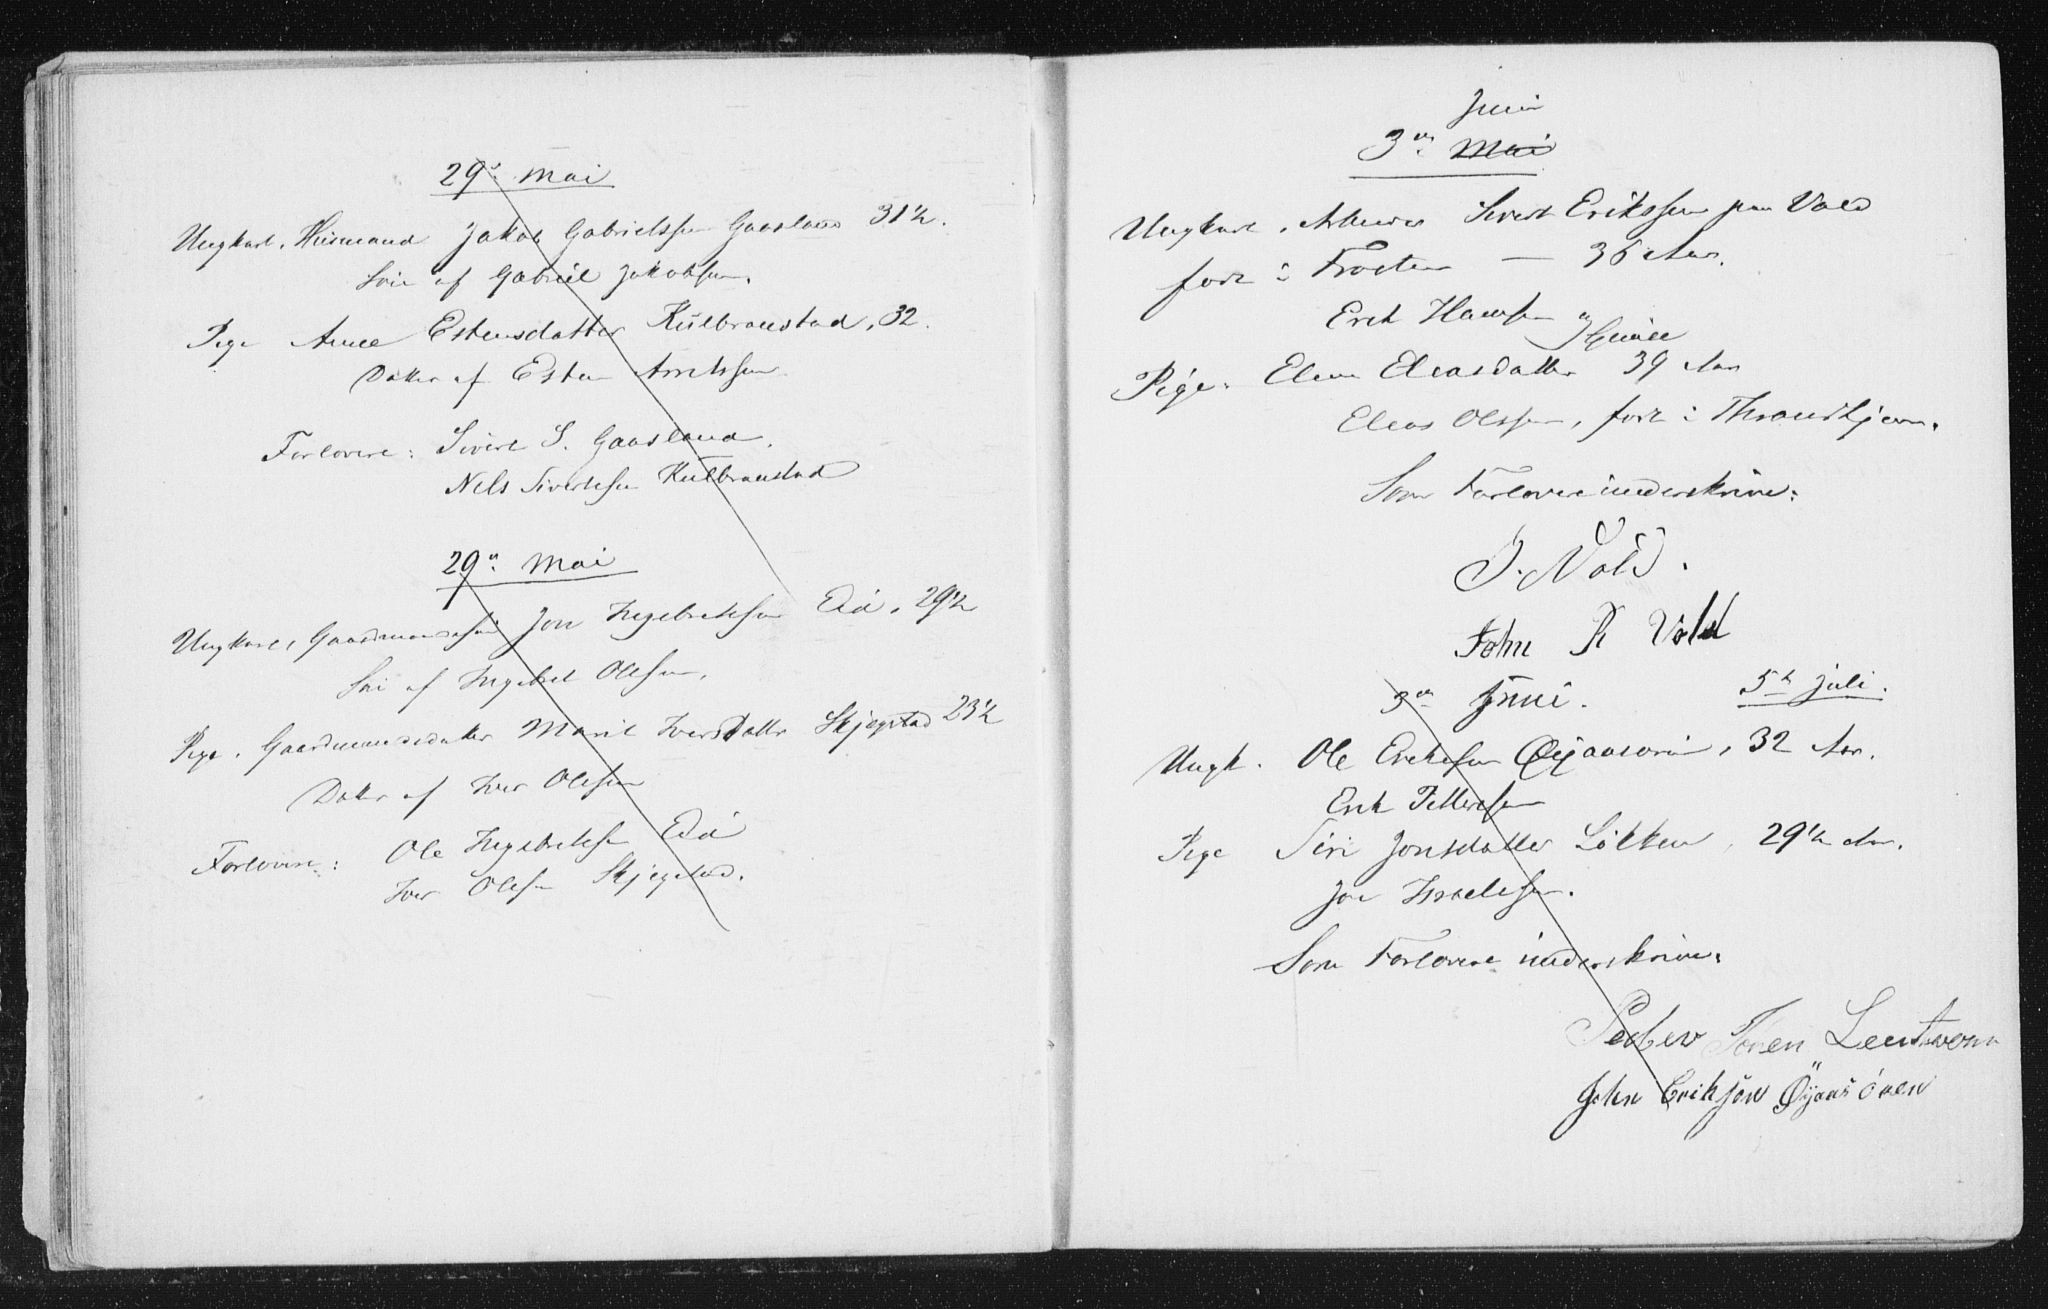 29de Mai
Ungkarl, Husmand Jakob Gabrielssen Gaasland 31½.
Søn af Gabriel Jakobsen.
Pige Anne Estensdatter Kulbranstad, 32.
Datter af Esten Arntssen
Forlovere: Sivert S. Gaasland.
Nels Sivertsen Kulbranstad
29de Mai
Ungkarl, Gaardmandssøn Jon Ingebretsen Eid, 29½
Søn af Ingebret Olsen.
Pige, Gaardmandsdatter Marit Iversdatter Skjegstad 23½
Datter af Iver Olsen
Forlovere: Ole Ingebretsen
Iver Olsen Skjegstad.
Juni
3de Mai
Ungkarl, Arbeider Sivert Erikssen paa Vold
født i Frosten — 36 Aar.
Erik Hansen
Pige. Elen Eleasdatter 39 Aar
Eleas Olssen, født i Throndhjem.
Som Forlovere underskrive:
J. Vold.
John R Vold
3de Juni. 5te Juli.
Ungk. Ole Eriksen Øyaasøren, 32 Aar.
Erik Pettersen
Pige Siri Jonsdatter Løkken, 29½ Aar.
Jon Israelsen.
Som Forlovere underskrive:
Peder Leentvorn
John Erikson Øyaasören